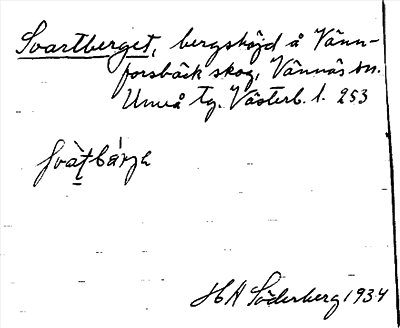 Svartberget, bergshöjd å Vänn-
forsbäck skog, Vännäs sn.
Umeå tg. Västerb. l. 253
svàtbárjə
H A Söderberg 1934